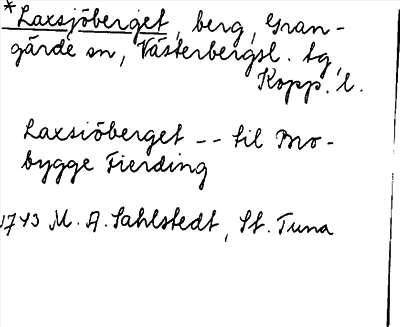 *Laxsjöberget, berg, Gran-
gärde sn, Västerbergsl. tg,
Kopp. l.
Laxsiöberget -- til Bro-
bygge Fierding
1743 M. A. Sahlstedt, St. Tuna